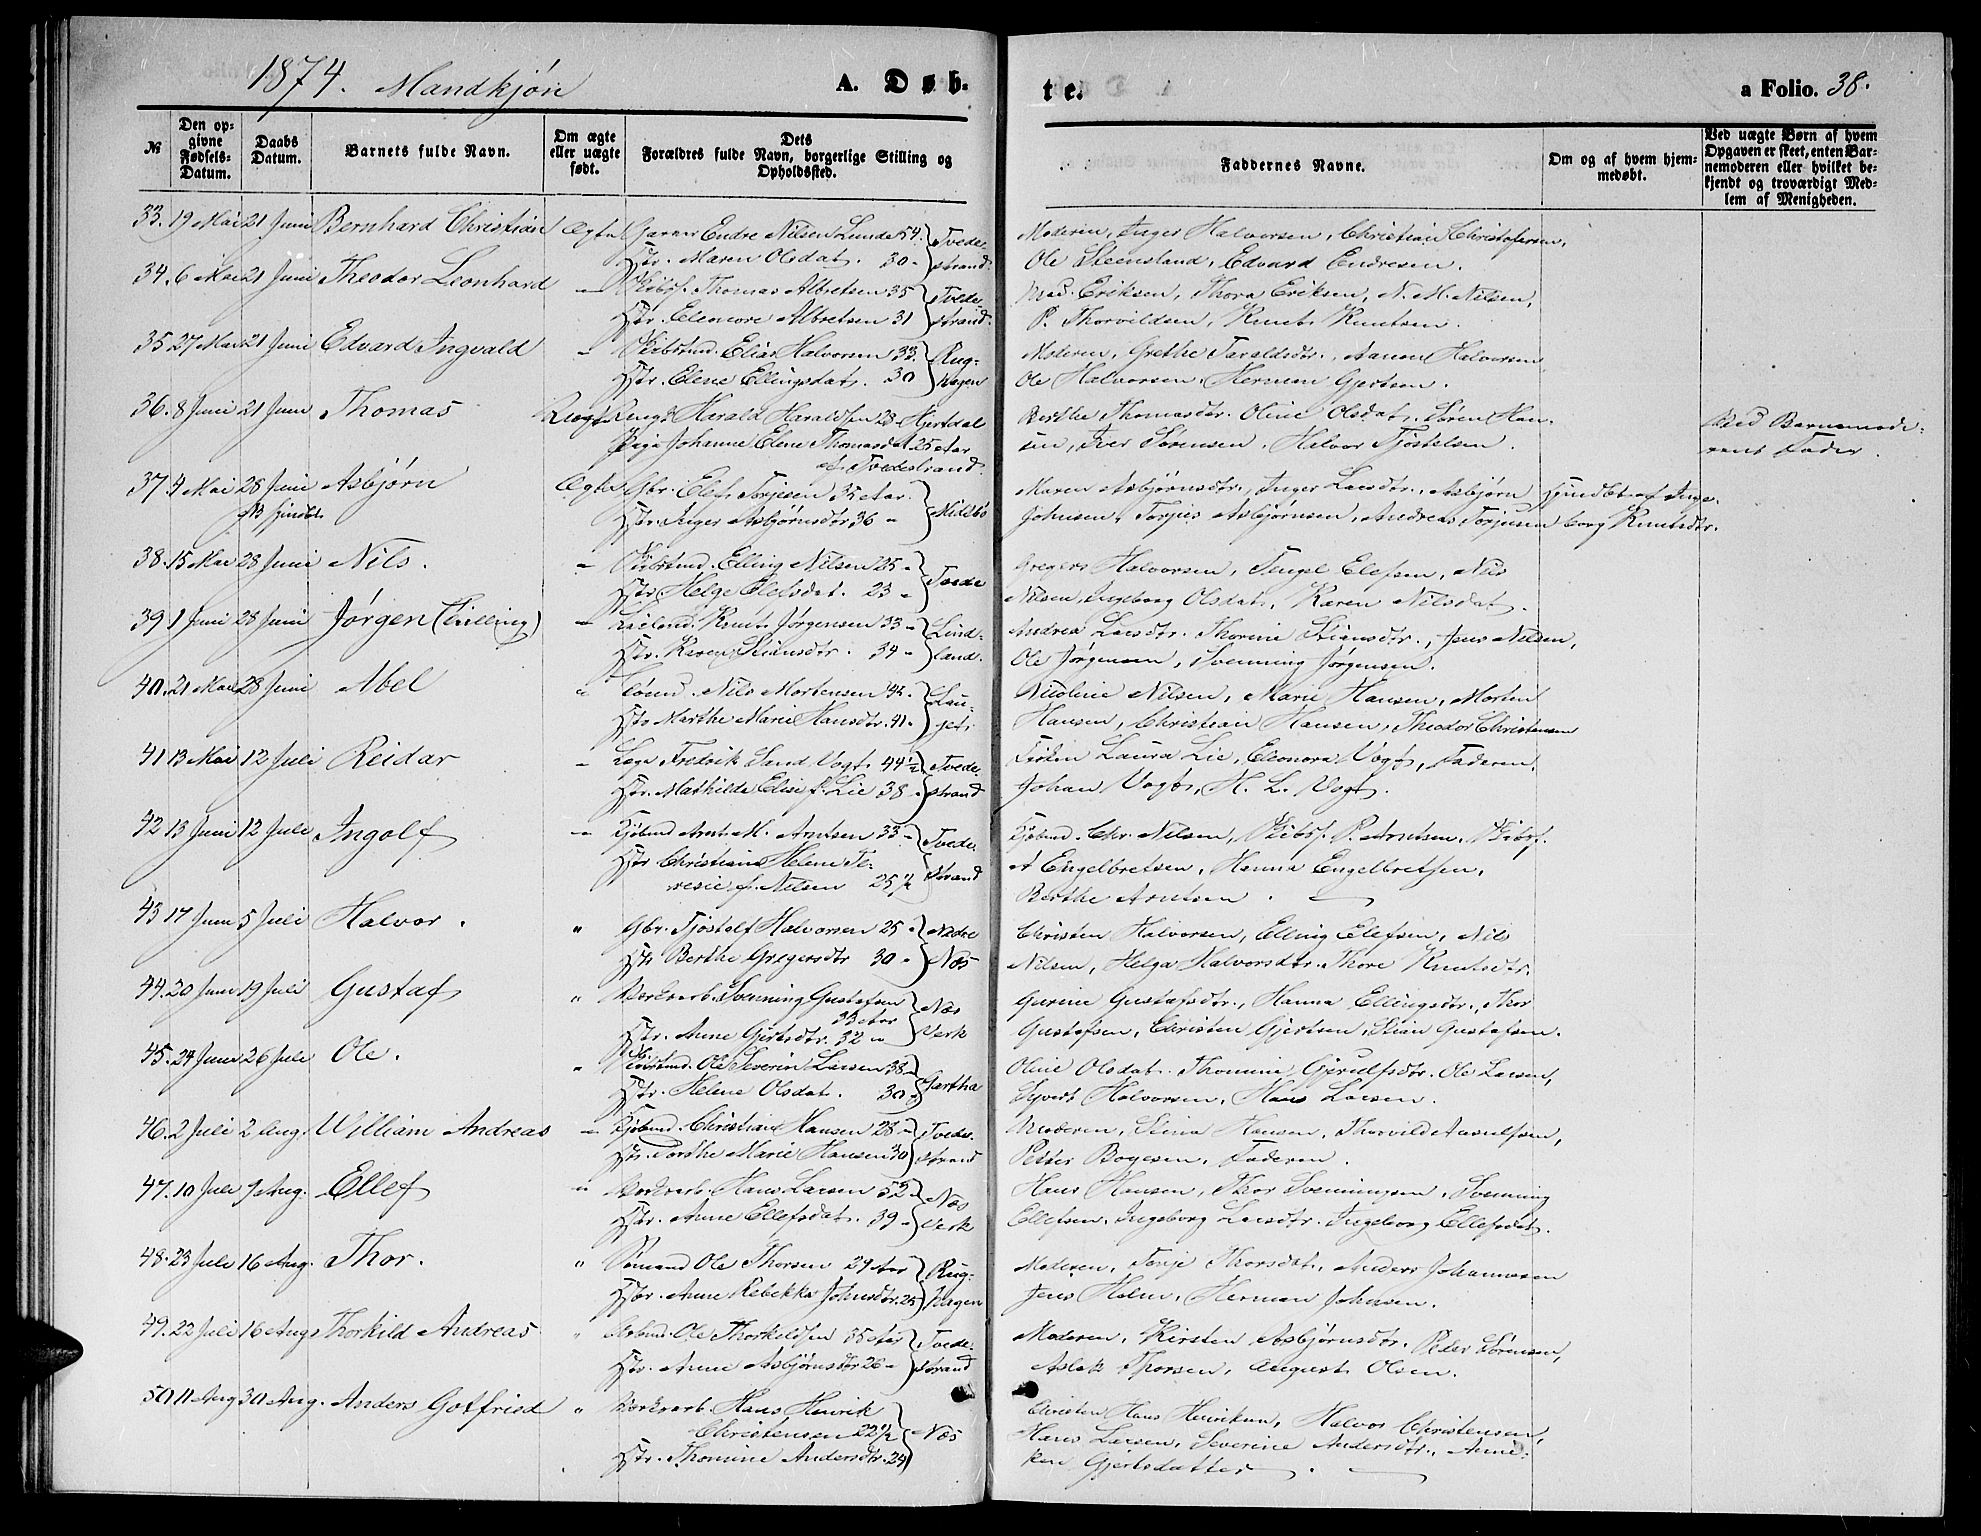 1874. Mandkjøn
A. Døb-
te.
a Folio. 38.
№
Den op-
givne
Fødsels-
Datum.
Daabs
Datum.
Barnets fulde Navn.
Om ægte
eller uægte
født.
Dets
Forældres fulde Navn, borgerlige Stilling og
Opholdssted.
Faddernes Navne.
Om og af hvem hjem-
medøbt.
Ved uægte Børn af hvem
Opgaven er skeet, enten Bar-
nemoderen eller hvilket be-
kjendt og troværdigt Med-
lem af Menigheden.
33. 19 Mai 21 Juni Bernhard Christian Ægte Garver Endre Nilsen Lunde 54. Tvede-
Hstr. Maren Olsdat. 30 - strand.
Moderen, Inger Halvorsen, Christian Christofersen,
Ole Steensland, Edvard Endresen.
34. 6 Mai 21 Juni Theodor Leonhard - Skibsf. Thomas Albretsen 35 Tvede
Hstr. Eleonore Albretsen 31 strand.
Mad. Eriksen, Thora Eriksen, N. M. Nilsen,
P. Thorvildsen, Knut Knutsen.
35 27 Mai 21 Juni Edvard Ingvald - Skibstmd. Elias Halvorsen 33. Rug-
Hstr. Elene Ellingsdat. 30 hagen
Moderen, Grethe Taraldsdtr., Aanon Halvorsen
Ole Halvorsen, Herman Gjertsen.
36. 8 Juni 21 Juni Thomas Uægte Ungk. Harald Haraldsen 28 Hjertdal
Pige Johanne Elene Thomasdat 25 Aar
af Tvedestrand
Berthe Thomasdtr. Oline Olsdat. Søren Han-
sen, Iver Sørensen, Halvor Tjøstelsen.
Ved Barnemode-
rens Fader.
37. 4 Mai 28 Juni Asbjørn Ægte Gbr. Elef Torjesen 35 Aar.
NB hjmdbt.
Hstr. Inger Asbjørnsdtr. 36 - Midbø
Maren Asbjørnsdtr., Inger Larsdtr., Asbjørn Hjmdbt. af Inge-
Johnsen, Torjus Asbjørnsen, Andreas Torjusen borg Knutsdtr.
38. 15 Mai 28 Juni Nils. - Skibstmd. Elling Nilsen 25 -
Hstr Helge Elefsdat. 23 - Tvede
Gregers Halvorsen, Tengel Elefsen, Nils
Nilsen, Ingeborg Olsdat, Karen Nilsdat.
39. 1 Juni 28 Juni Jørgen (Tvilling) - Leilænd. Knut Jørgensen 33 - Lind-
Hstr. Karen Stiansdtr. 34 - land.
Andrea Larsdtr. Thorine Stiansdtr., Jens Nilsen,
Ole Jørgensen, Svenning Jørgensen.
40. 21 Mai 28 Juni Abel " Tømd. Nils Mortensen 42. Lau-
Hstr Marthe Marie Hansdtr. 41 -
Nicoline Nilsen, Marie Hansen, Morten
Hansen, Christian Hansen, Theodor Christensen
41 13 Mai 12 Juli Reidar - Læge Fredrik Sand Vogt 44½ Tvede-
Hstr. Mathilde Elise f. Lie 38 - strand
Frøken Laura Lie, Eleonora Vogt, Faderen,
Johan Vogt, H. L. Vogt.
42 13 Juni 12 Juli Ingolf - Kjøbmd Arnt M. Arntsen 33 - Tvede-
Hstr Christiane Helene Te-
resie f. Nilsen 25½ strand
Kjøbmd. Chr. Nilsen, Skibsf. P. Arntsen, Skibsf.
A Engelbretsen, Hanna Engelbretsen,
Berthe Arntsen.
43 17 Juni 5 Juli Halvor. " Gbr. Tjøstelf Halvorsen 25 - Nedre
Hstr Berthe Gregersdtr 30 - Næs
Christen Halvorsen, Elling Elefsen, Nils
Nilsen, Helga Halvorsdtr. Thore Knutsdtr.
44. 20 Juni 19 Juli Gustaf " Værksarb. Svenning Gustafsen
33 Aar Næs
Hstr. Anne Gjertsdtr. 32 - Verk
Gurine Gustafsdtr., Hanna Ellingsdtr., Thor
Gustafsen, Christen Gjertsen, Stian Gustafsen.
45. 24 Juni 26 Juli Ole. " Skibstmd. Ole Severin Larsen 38 -
Hstr. Helene Olsdat. 30 - Gartha
Oline Olsdat. Thomine Gjerulfsdtr. Ole Larsen,
Syvert Halvorsen, Hans Larsen.
46. 2 Juli 2 Aug. William Andreas - Kjøbmd. Christian Hansen 28 - Tvede-
Hstr. Dorthe Marie Hansen 30 strand
Moderen, Stina Hansen, Thorvild Aanulfsen,
Petter Bogesen, Faderen.
47. 10 Juli 9 Aug. Ellef " Værksarb. Hans Larsen 52 - Næs
Hstr. Anne Ellefsdat. 39 - Verk
Hans Hansen, Thor Svenningsen, Svenning
Ellefsen, Ingeborg Larsdtr. Ingeborg Ellefsdat.
48. 23 Juli 16 Aug. Thor. " Sømand Ole Thorsen 29 Aar Rug-
Hstr. Anne Rebekka Johnsdtr. 25 hagen
Moderen, Torje Thorsdat, Anders Johannesen
Jens Holm, Herman Johnsen.
49. 22 Juli 16 Aug. Thorkild Andreas " Ole Thorkildsen 35 Aar Tvede-
Hstr. Anne Asbjørnsdtr 26 - strand
Moderen, Kirsten Asbjørnsdtr. Peder Sørensen,
Aslak Thorsen, August Olsen.
50 11 Aug 30 Aug. Anders Gotfried " Værksarb. Hans Henrik
Christensen 22½ Næs
Hstr. Thomine Andersdtr. 24
Christen Hans Henriksen, Halvor Christensen,
Hans Larsen, Severine Andersdtr., Anne-
ken Gjertsdatter.